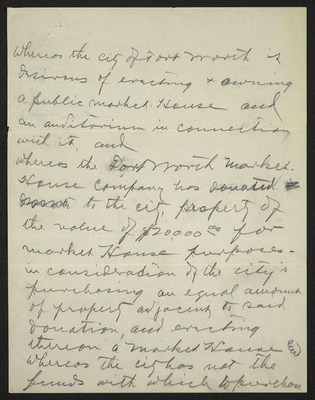 Whereas the city of Fort Worth is
desirous of erecting & owning
a public market House and
an auditorium in connection
with it, and
Whereas the Fort Worth Market
House Company has donated
to the city, property of
the value of $20000 00 for
market House purposes -
in consideration of the city's
purchasing an equal amount
of property adjacent to said
donation, and erecting
thereon a market House
Whereas the city has not the
funds with which to purchase